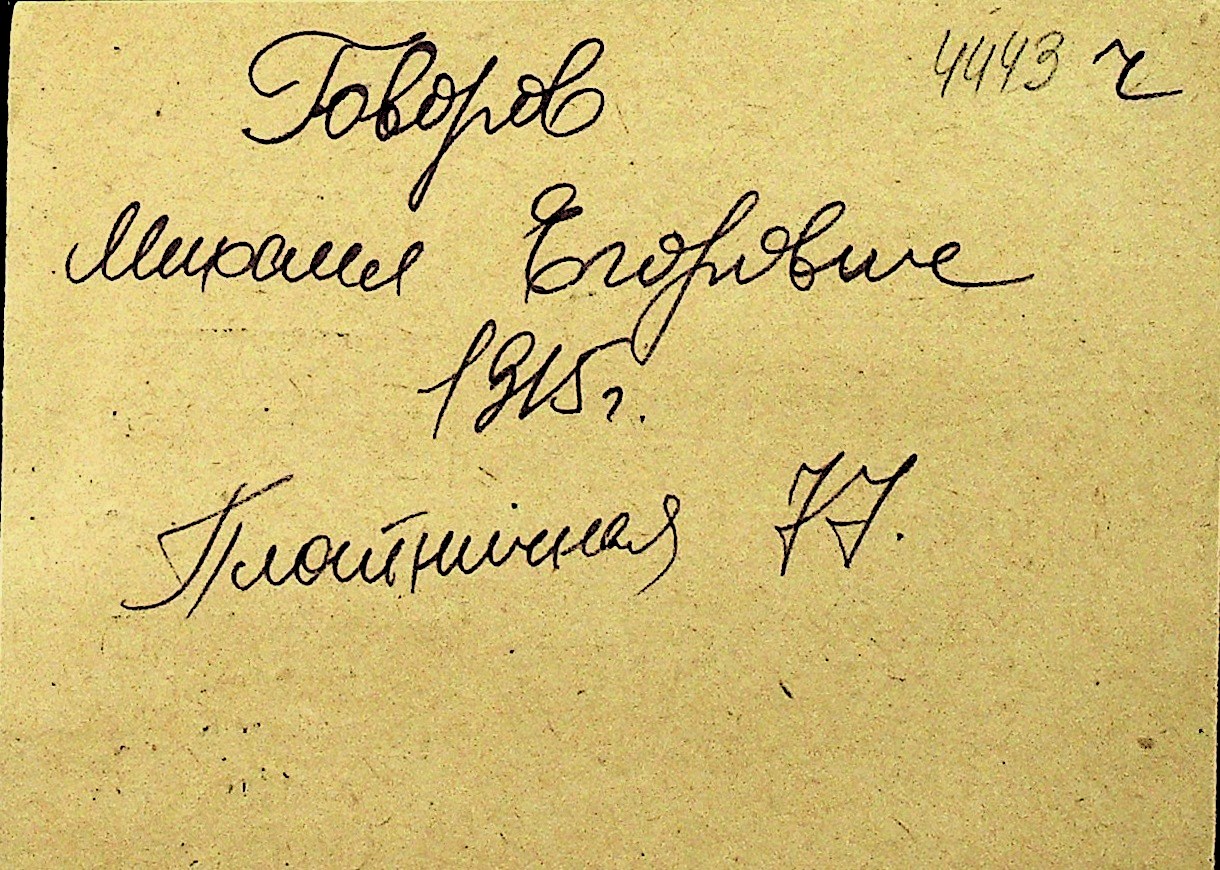 Говоров 4443 ч
Михаил Егорович
1915 г.
Плотничная 77.